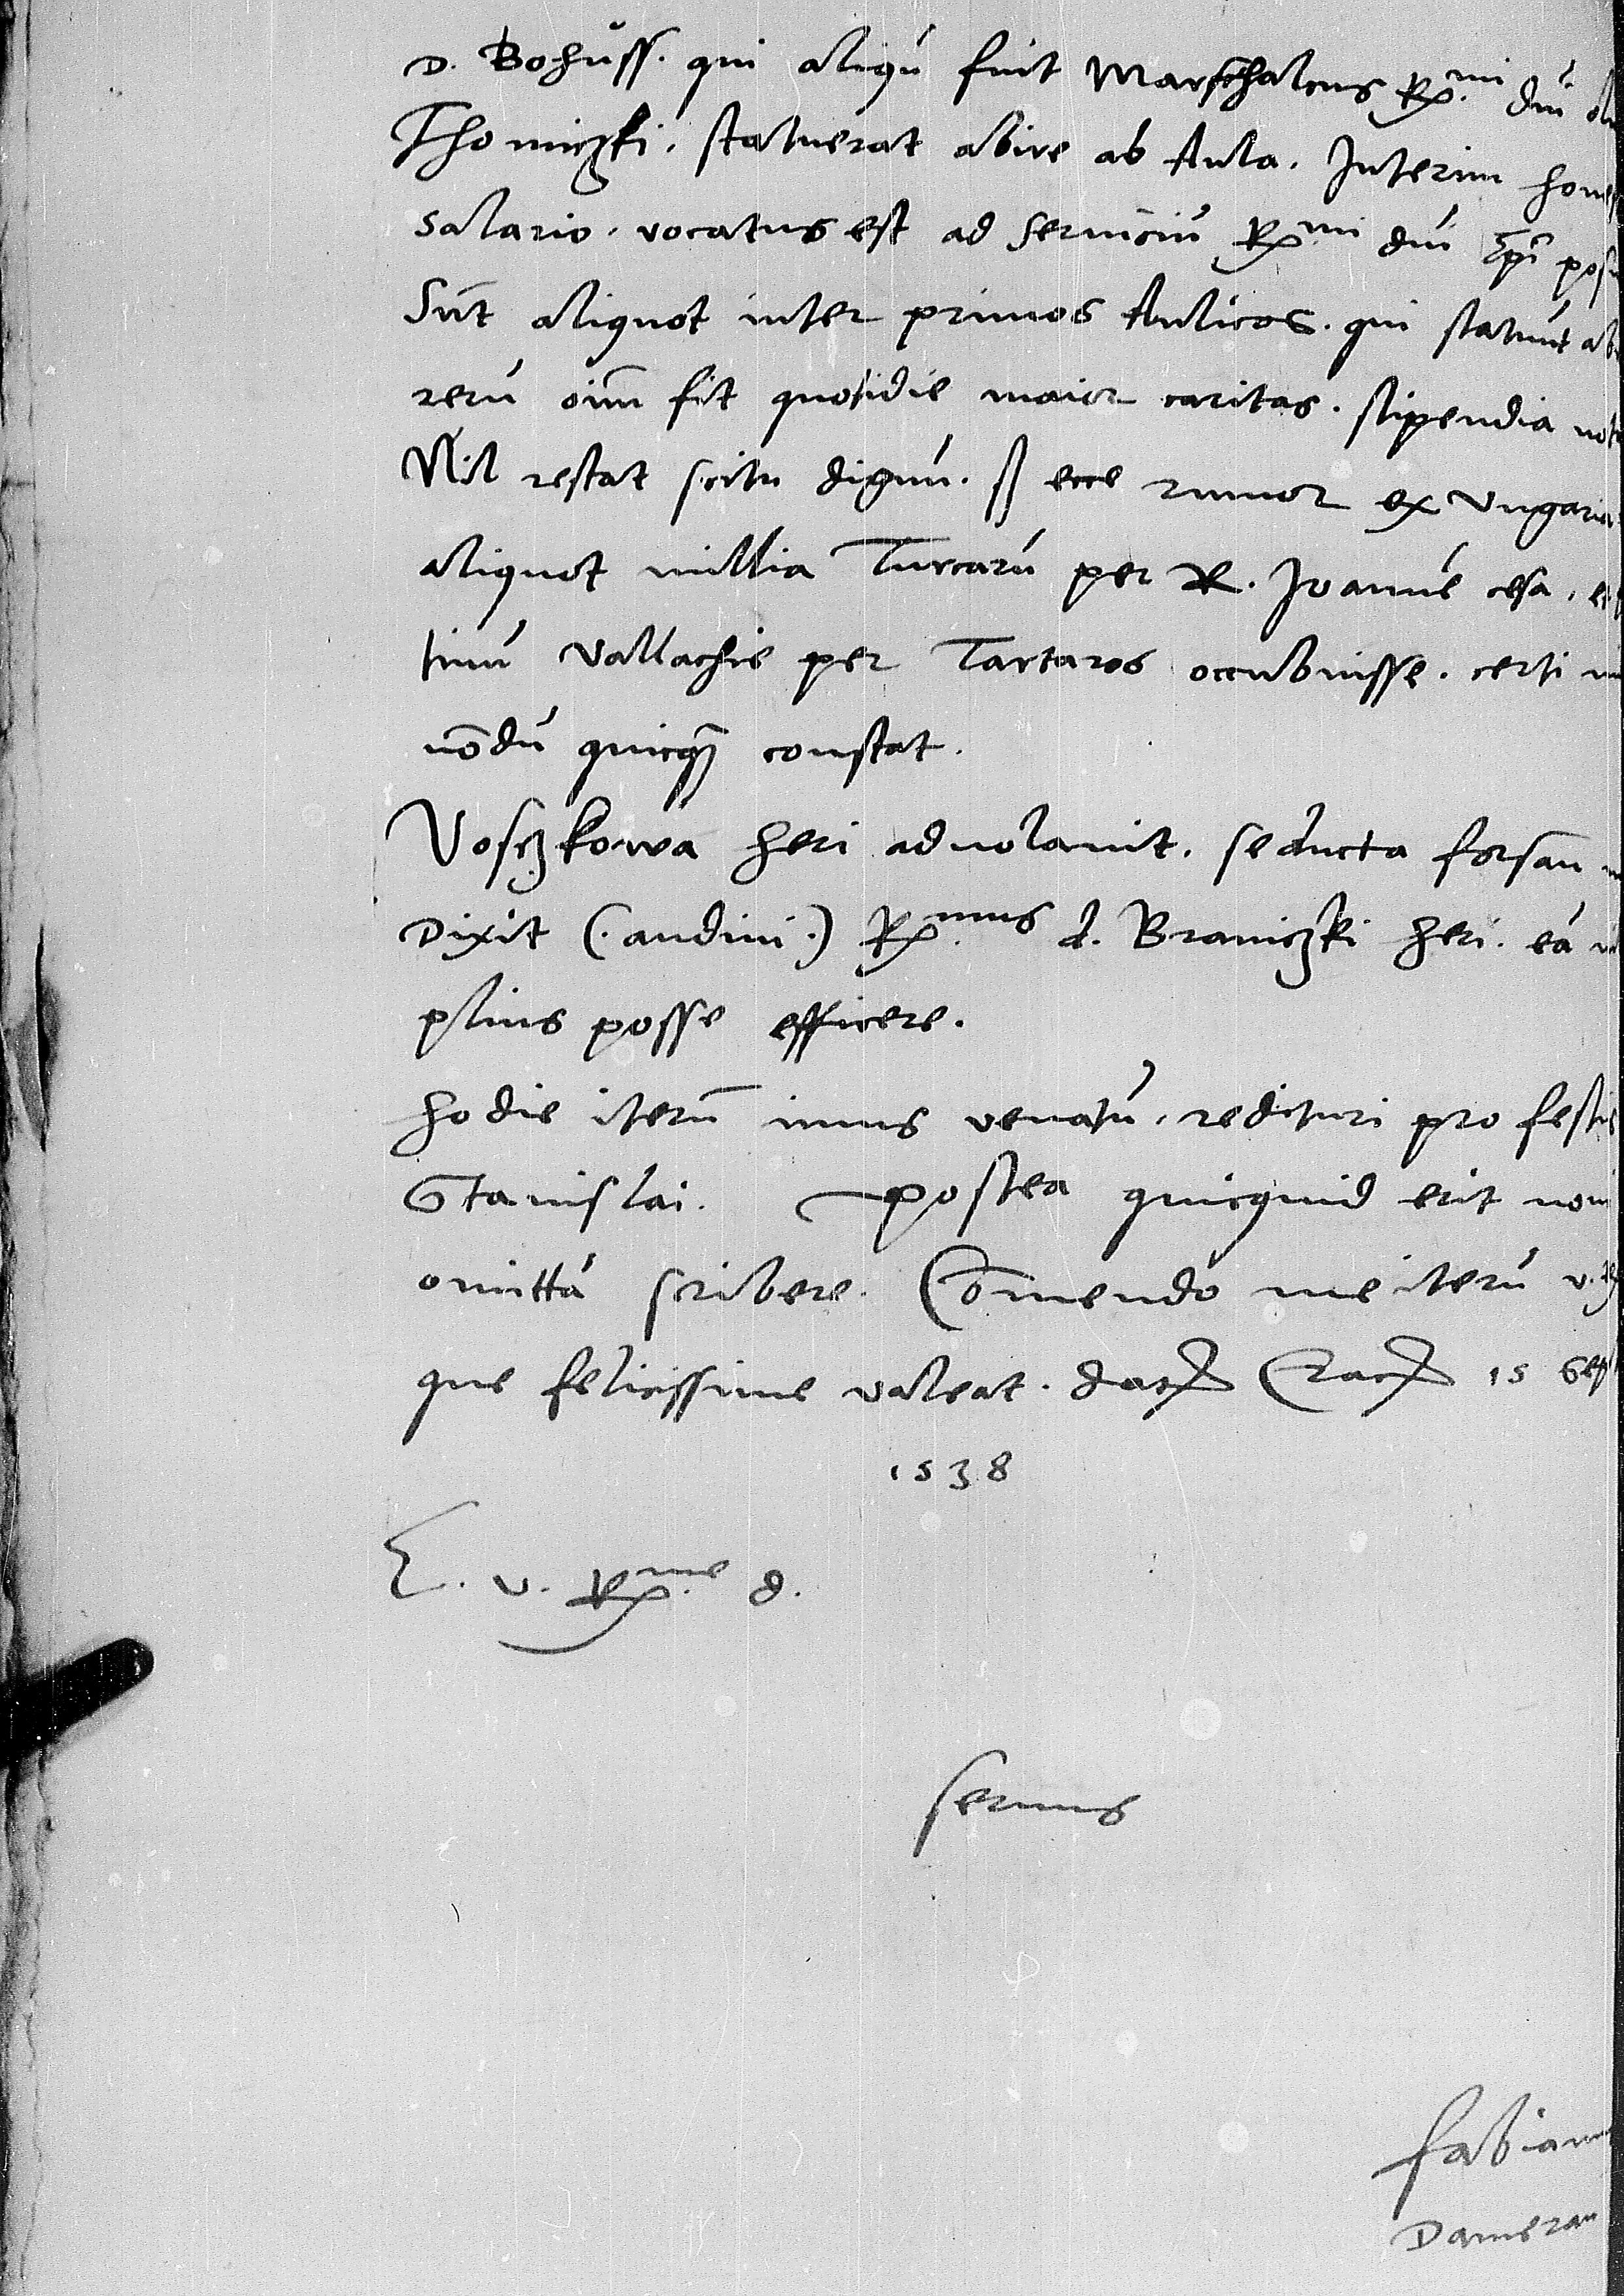 D. Bohuss. qui aliqũ fuit Marschalcus R.mi dni
Thomiczki. statuerat abire ab Aula. Interim
salario. vocatus est ad seruiciũ R.mi dni Epi
Sũt aliquot inter primos Aulicos. qui statuũt
rerũ oim̃ fit quotidie maior caritas. stipendia
Nil restat scitu dignũ. ecce rumor ex Vngaria
aliquot millia Turcarũ per R. Joannẽ cesa.
tinũ Vallachie per Tartaros occubuisse. certi
nõdũ quicq̃ constat.
Voseczkowa heri aduolauit. seducta forsan
Dixit (. audiui .) R.mus d. Braniczki heri. eã
plius posse efficere.
hodie iterũ imus venatũ. redituri pro festo
Stanislai. postea quicquid erit
omittã scribere. Cõmendo me iterũ v.
que felicissime valeat. dat Crac 15 Sep
1538
E. v. R.me d.
seruus
fabian
Dameraw